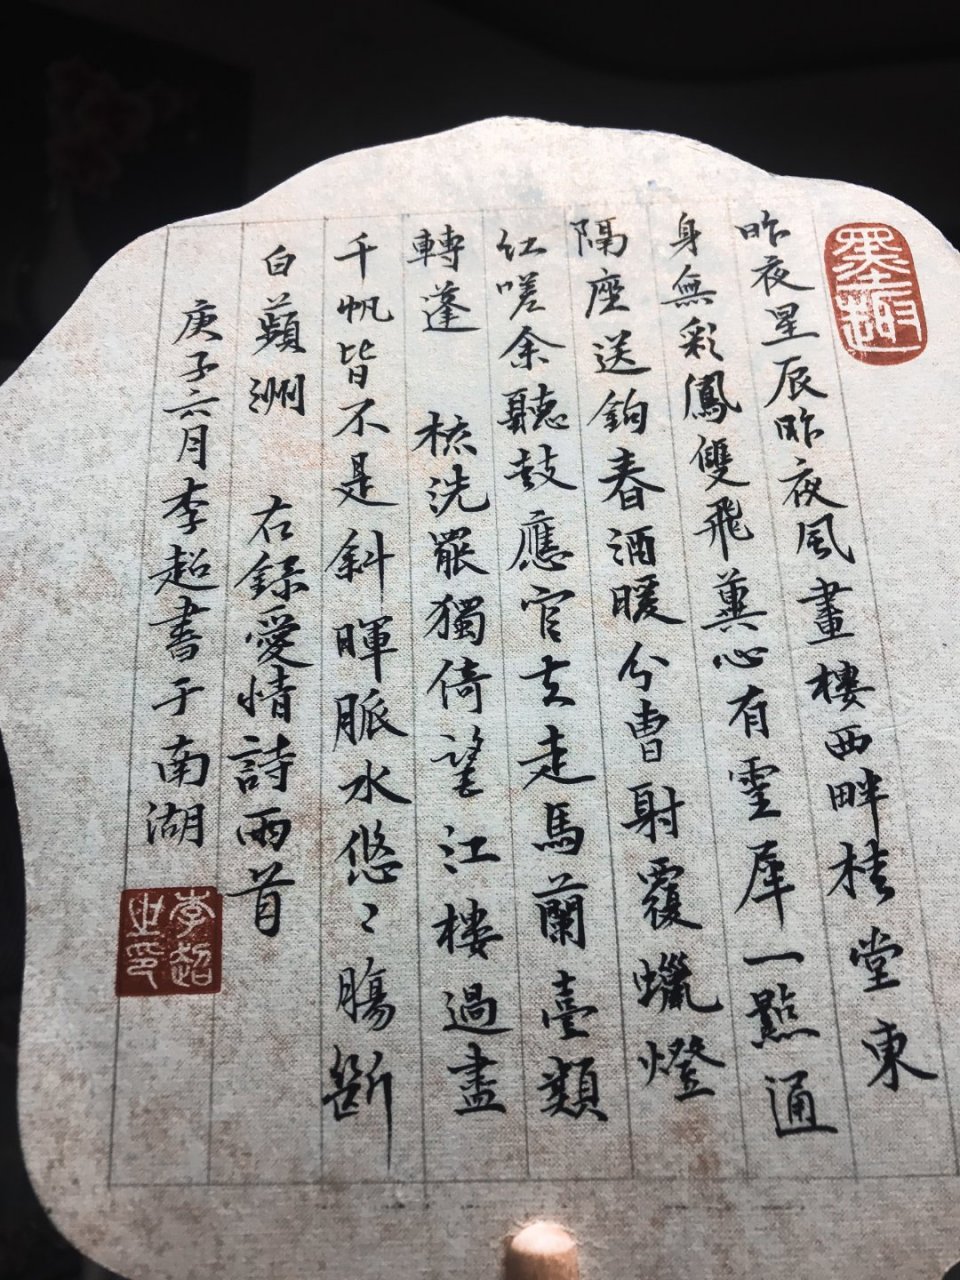 墨趣
昨夜星辰昨夜風畫樓西畔桂堂東
身無彩鳳雙飛蓺心有霊犀一點通
隔座送鉤春酒暖分曹射覆蠟燈
红嗟余聽鼓應官去走馬蘭臺類
轉蓬 梳洗罷獨倚望江樓過盡
千帆皆不是斜暉脈水悠〻腸斷
白蘋洲 右録愛情詩兩首
庚子六月李超書于南湖
李超之印